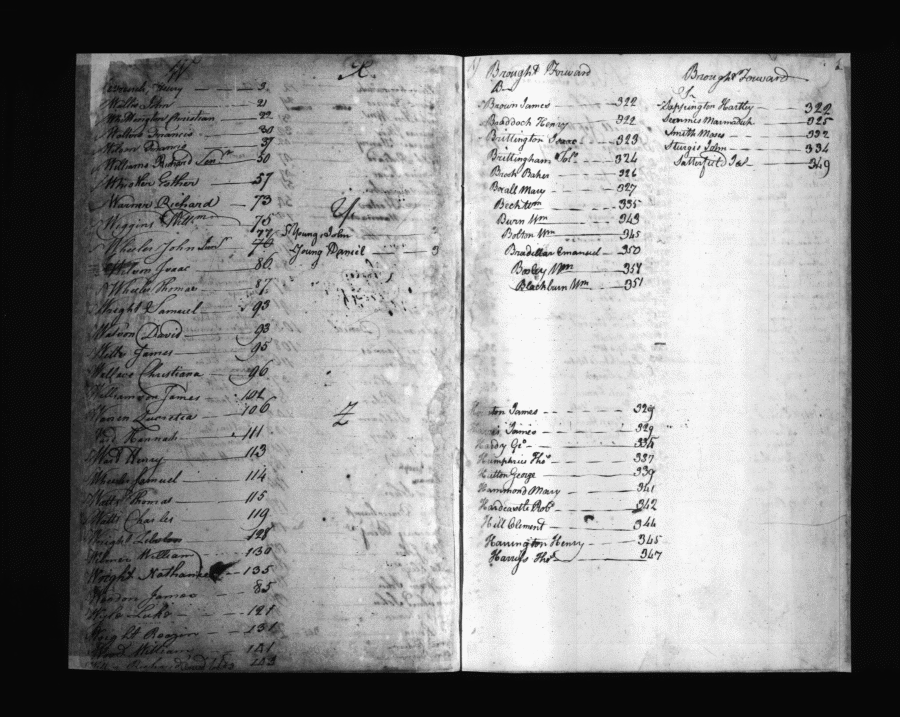 W
Henry — 3
Watts John — 21
Christian — 22
Wallis Francis — 30
Wilson Dennis — 37
Williams Richard Senr — 50
Whicker Esther — 57
Warner Richard — 73
Wiggins Willm — 75
77
Wheeler John Senr — 78
Wilson Isaac — 86
Wheeler Thomas — 87
Wright Samuel — 93
Watson David — 93
Watts James — 95
Wallace Christiana — 96
Williamson James — 102
Warren Lucretia — 106
Hannah — 111
Ward Henry — 113
Wheeler Samuel — 114
Watts Thomas — 115
Watts Charles — 119
Wright — 128
Wilmer William — 130
Wright Nathaniel — 135
Wesson James — 85
Luke — 121
Wright — 131
William — 131
X
Y
Young John
Young Daniel — 3
Z
Brought Forward
B
Brown James — 322
Braddock Henry — 322
Brittington Isaac — 323
Brittingham Solo — 324
Brock Baker — 326
Beall Mary — 327
Beck — 335
Burn Wm — 343
Bolton Wm — 345
Bradillar Emanuel — 350
Booley Wm — 351
Blackburn Wm — 351
James — 329
James — 329
Hardy Geo — 334
Humphries Thos — 337
Hutton George — 339
Hammond Mary — 341
Hardcastle Robt — 342
Hill Clement — 344
Harrington Henry — 345
Harriss Thos — 347
Brought Forward
S
Sappington Hartley — 322
Semmes Marmaduk — 325
Smith Moses — 332
Sturgis John — 334
Satterfield Jas — 349